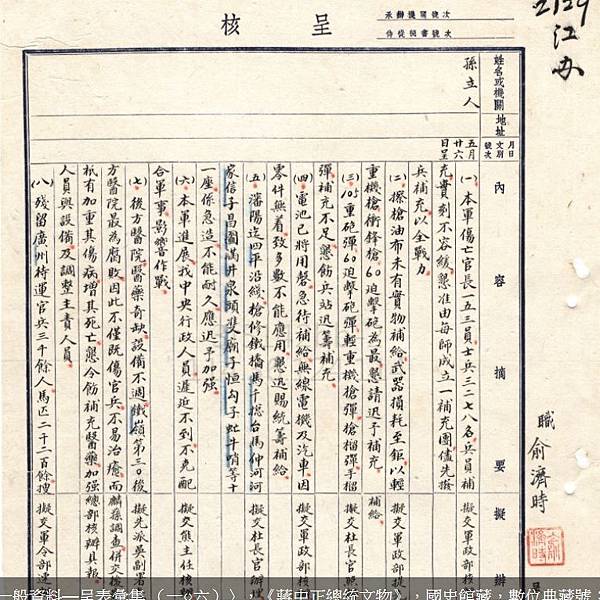 2129
江 办
呈核
承辦機關號次
侍從秘書號次
姓名或機關 地址
月日 文別 號次
內容摘要
擬辦
孫立人
五月廿六日呈
(一)本軍傷亡官長一五三員士兵三二七八名兵員補
充實刻不容緩懇准由每師成立一補充團儘先撥
兵補充以全戰力
(二)擦槍油布未有實物補給武器損耗至鉅以輕
重機槍衝鋒槍60迫擊砲為最懇請迅予補充
(三)105重砲彈60迫擊砲彈輕重機槍彈槍榴彈手榴
彈補充不足懇飭兵站迅籌補充
(四)電池已將用罄急待補給無線電機及汽車因
零件無着致多數不能應用懇迅賜統籌補給
(五)瀋陽迄四平沿綫搶修鐵橋馬千總台馬仲河河
家信子昌圖滿井泉頭雙廟子恒勾子虻牛哨等十
一座係急造不能耐久應迅予加強
(六)本軍進展找中央行政人員遲延不到不克配
合軍事影響作戰
(七)後方醫院醫藥奇缺設備不週鐵嶺第三〇後
方醫院最為腐敗因此不僅既傷官兵不易治癒而
祇有加重其傷病增其死亡懇令飭補充醫藥加強
人員與設備及調整主責人員
(八)殘留廣州待運官兵三千餘人馬匹二千二百餘
擬交軍政部核
擬交軍政部提
補給
擬交社長官
擬交軍政部核
擬交社長官辦理
擬交熊主任核
擬先派吳副署
麟蓀調查併交後
總部核辦具報
擬交軍令部
職俞濟時
呈
一般資料—呈表彙集(一〇六)〉,《蔣中正總統文物》,國史館藏,數位典藏號: